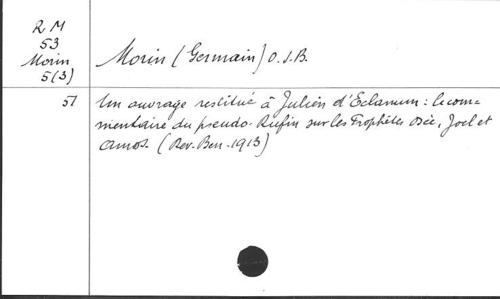 R M
53
Morin
5(3)
Morin (Germain) O.S.B.
51
Un ouvrage restitué à Julien d'Eclanum : le com-
mentaire du pseudo-Rufin sur les Prophètes Osée, Joel et
Amos. (Rev. Ben. 1913)